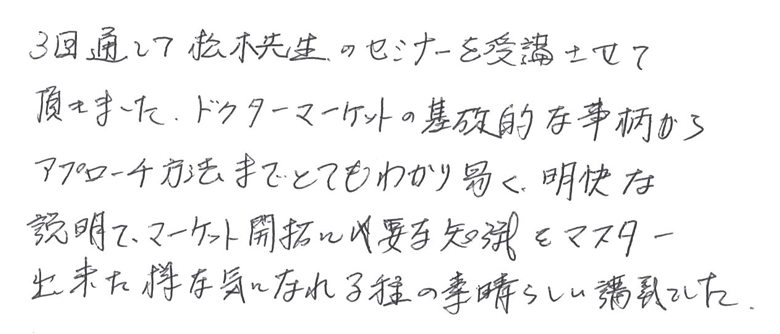 3回通して松木先生のセミナーを受講させて
頂きました。ドクターマーケットの基礎的な事柄から
アプローチ方法までとてもわかり易く、明快な
説明で、マーケット開拓に必要な知識をマスター
出来た様な気になれる程の素晴らしい講義でした。